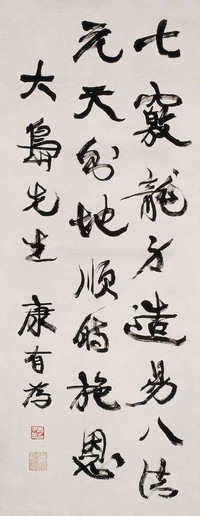 七竅龍造易八法
元天地順時施恩
大島先生 康有為